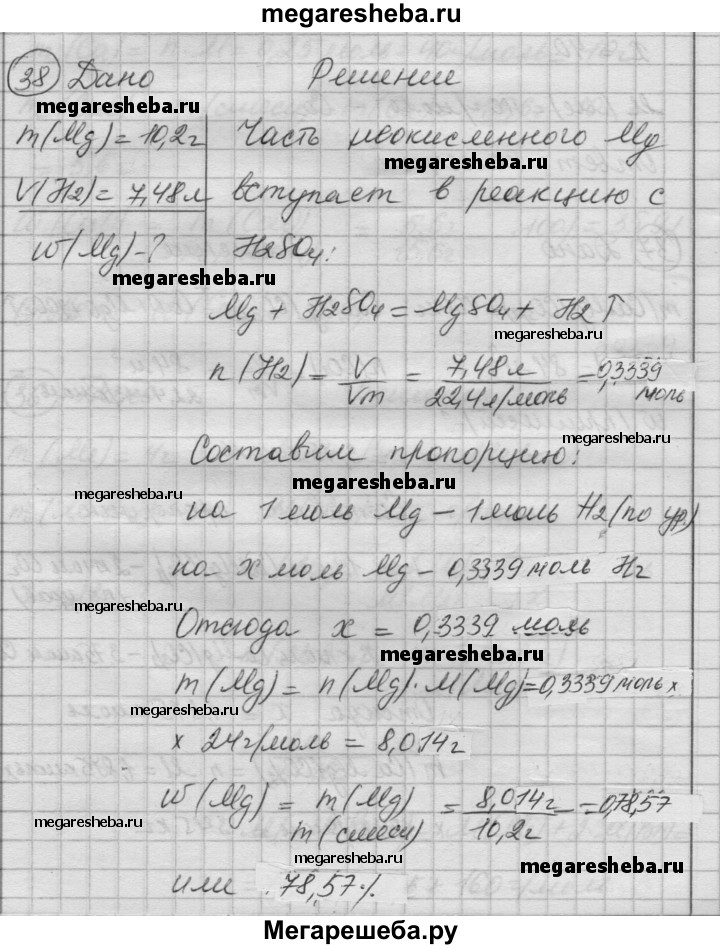 megaresheba.ru
38 Дано Решение
megaresheba.ru
m(Mg)=10,2г Часть неокисленного Mg
megaresheba.ru
V(H2)=7,48л вступает в реакцию с
w(Mg)-? H2SO4:
megaresheba.ru
Mg + H2SO4 = MgSO4 + H2↑
megaresheba.ru
n(H2) = V/Vm = 7,48л/22,4л/моль = 0,3339 моль
megaresheba.ru
Составим пропорцию:
megaresheba.ru
megaresheba.ru
на 1 моль Mg – 1 моль H2 (по ур.)
на x моль Mg – 0,3339 моль H2
megaresheba.ru
Отсюда x = 0,3339 моль
megaresheba.ru
m(Mg) = n(Mg)·M(Mg)=0,3339моль х
megaresheba.ru
х 24г/моль = 8,014г
w(Mg) = m(Mg)/m(смеси) = 8,014г/10,2г = 0,78,57
megaresheba.ru
megaresheba.ru
megaresheba.ru
или = 78,57%
Мегарешеба.ру